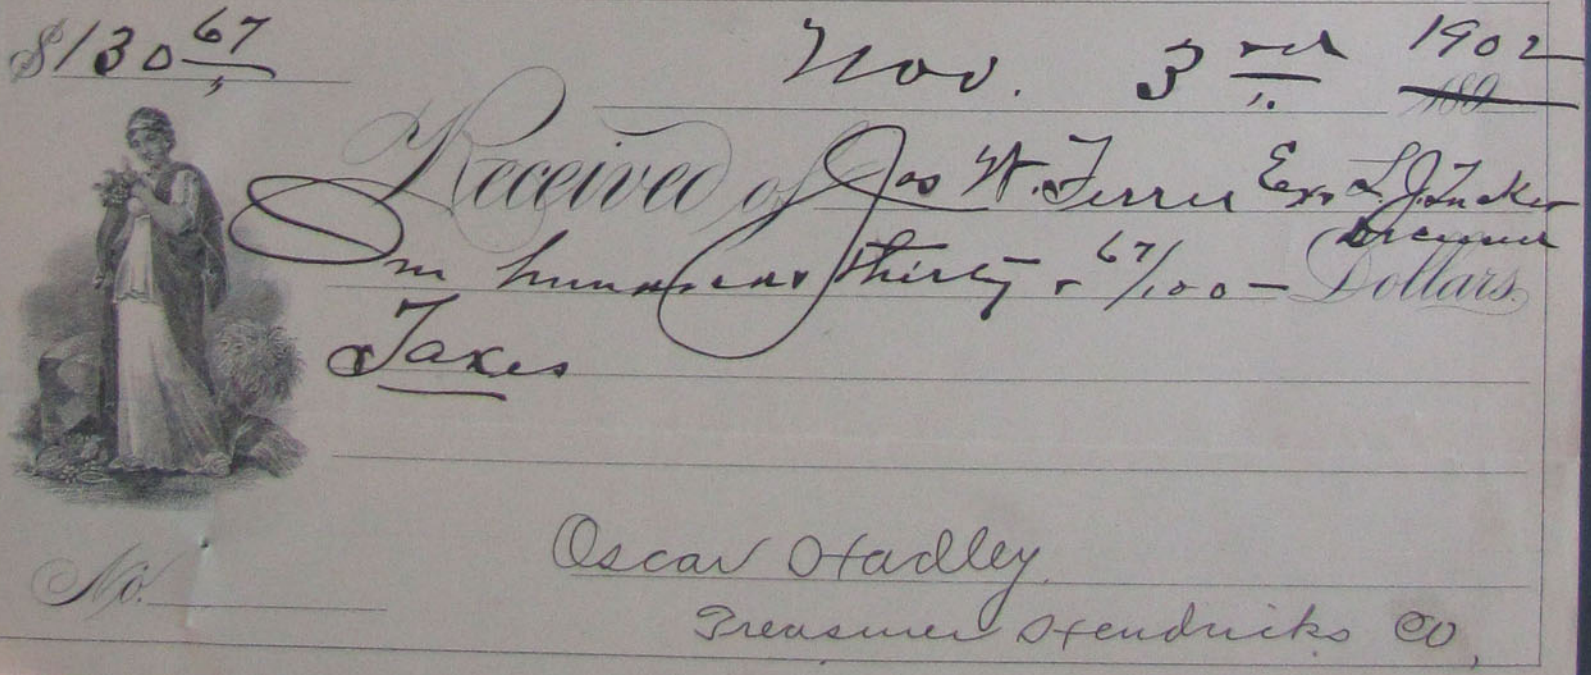 $130 67
Nov. 3rd 1902
189
Received of Jos W. Ferree Exr L. J. Tucker
Deceased
One hundred thirty & 67/100 — Dollars.
Taxes
Oscar Hadley
No. Treasurer Hendricks Co,